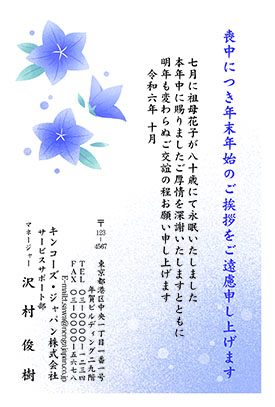 喪中につき年末年始のご挨拶をご遠慮申し上げます
七月に祖母花子が八十歳にて永眠いたしました
本年中に賜りましたご厚情を深謝いたしますとともに
明年も変わらぬご交誼の程お願い申し上げます
令和六年 十月
〒123-4567
東京都港区中央一丁目一番一号
年賀ビルディング二九階
TEL 〇三-〇〇〇〇-一二三四
FAX 〇三-〇〇〇〇-五六七八
キンコーズ・ジャパン株式会社
サービスサポート部
マネージャー 沢村 俊樹